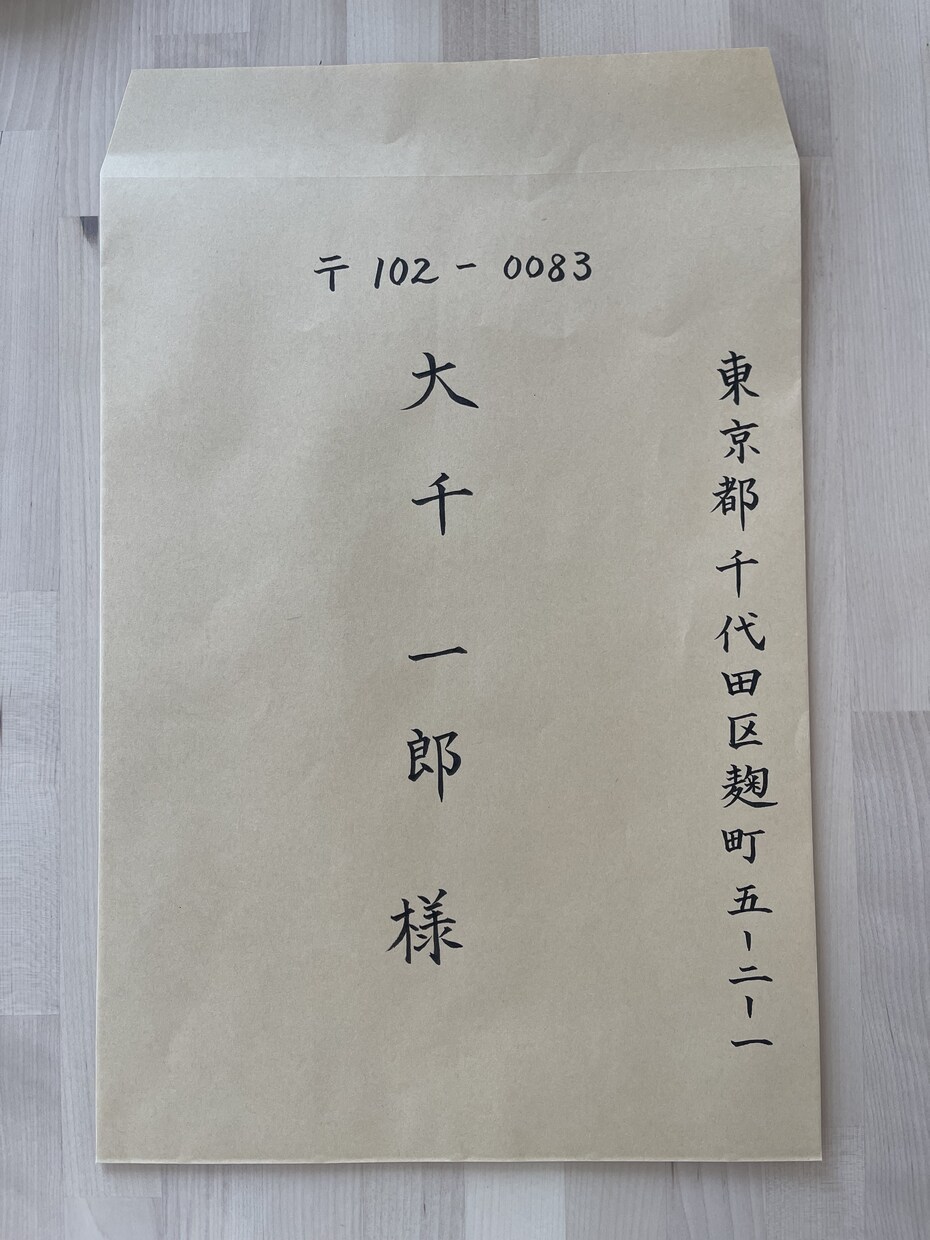 〒102-0083
東京都千代田区麹町五-二-一
大千一郎様